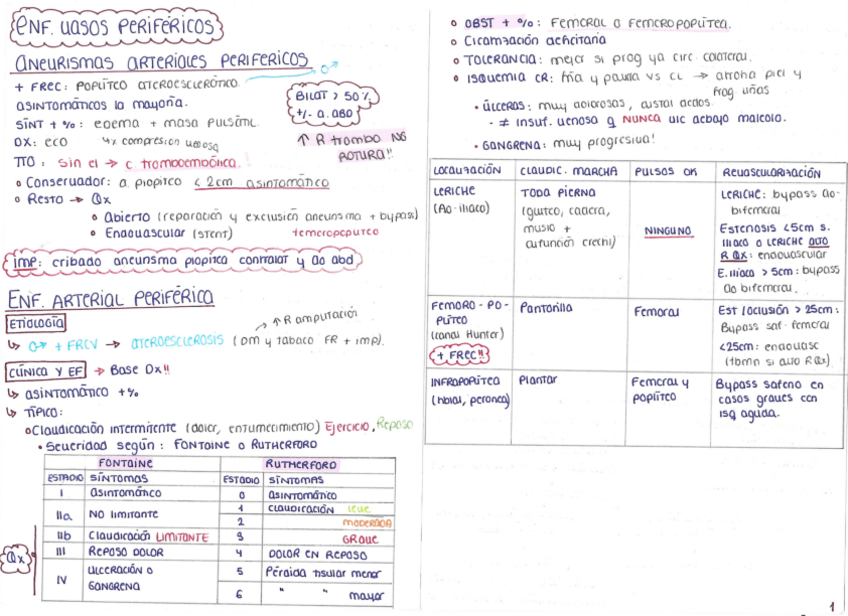 ENF. VASOS PERIFÉRICOS
ANEURISMAS ARTERIALES PERIFÉRICOS
+ FREC: POPLÍTEO ATEROESCLERÓTICO. ♂
ASINTOMÁTICOS la mayoría.
SÍNT + %: edema + masa PULSÁTIL.
DX: eco 4x compresion venosa
BILAT > 50%
+/- a. ABD
↑ R trombo NO
ROTURA!!
TTO: Sin ci → c. tromboembólica.!
Conservador: a. poplíteo < 2cm asintomático
Resto → Qx
Abierto (reparación y exclusión aneurisma + bypass)
Endovascular (STENT) femoropoplíteo
IMP: cribado aneurisma poplíteo contralat y Ao abd
ENF. ARTERIAL PERIFÉRICA
ETIOLOGÍA
↳ ♂ + FRCV → ATEROESCLEROSIS (DM y tabaco FR + imp).
→ ↑ R amputación
CLÍNICA Y EF → Base Dx!!
↳ ASINTOMÁTICO + %
↳ TÍPICO:
Claudicación intermitente (dolor, entumecimiento) Ejercicio, Reposo
Severidad según: FONTAINE O RUTHERFORD
FONTAINE RUTHERFORD
ESTADIO SÍNTOMAS ESTADIO SÍNTOMAS
I ASINTOMÁTICO 0 ASINTOMÁTICO
IIa NO LIMITANTE 1 CLAUDICACIÓN LEVE
2 MODERADA
IIb Claudicación LIMITANTE 3 GRAVE
III REPOSO DOLOR 4 DOLOR EN REPOSO
IV ULCERACIÓN O GANGRENA 5 Pérdida tisular menor
6 " " mayor
Qx
OBST + %: FEMORAL O FEMOROPOPLÍTEA.
Cicatrización deficitaria
TOLERANCIA: mejor si prog ya circ. colateral.
ISQUEMIA CR: fría y pálida VS CL → atrofia piel y
frag uñas
ÚLCERAS: muy dolorosas, distal dedos.
≠ Insuf. venosa q NUNCA ulc debajo maleolo.
GANGRENA: muy progresiva!
LOCALIZACIÓN CLAUDIC. MARCHA PULSOS OK REVASCULARIZACIÓN
LERICHE
(Ao-iliaco)
TODA PIERNA
(glúteo, cadera,
muslo +
disfunción eréctil)
NINGUNO
LERICHE: bypass ao-
bifemoral
Estenosis <5cm s.
iliaco o LERICHE alto
R QX: endovascular
E. iliaco > 5cm: bypass
ao bifemoral.
FEMORO-PO-
PLÍTEO
(canal Hunter)
+ FREC!!
Pantorrilla
Femoral
Est/oclusión > 25cm:
Bypass saf-femoral
<25cm: endovasc
(tbmn si alto RQx).
INFRAPOPLÍTEA
(tibial, peronea)
Plantar
Femoral y
poplíteo
Bypass safeno en
casos graves con
isq aguda.
1